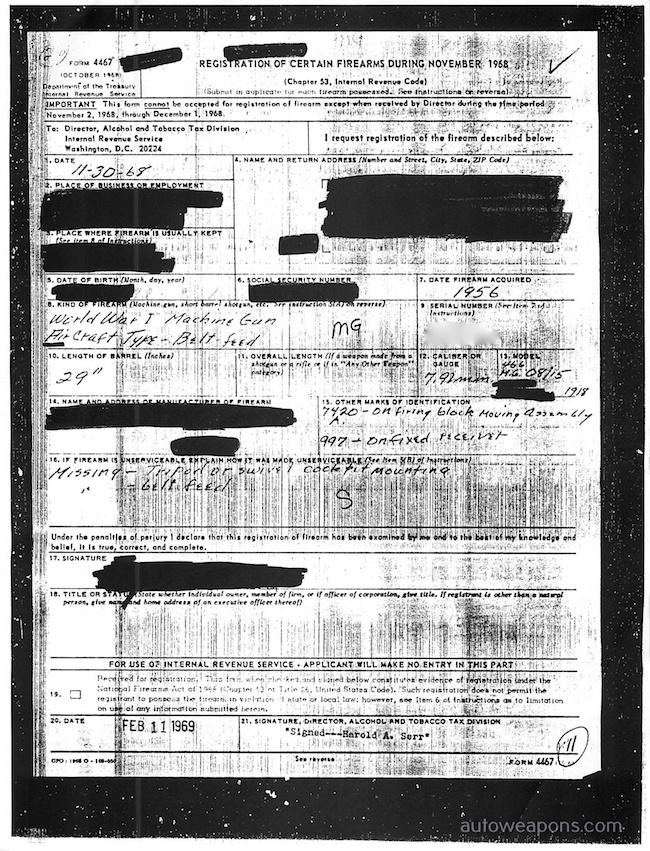 FORM 4467
(OCTOBER 1968)
Department of the Treasury
Internal Revenue Service
REGISTRATION OF CERTAIN FIREARMS DURING NOVEMBER 1968
(Chapter 53, Internal Revenue Code)
(Submit in duplicate for each firearm possessed. See instructions on reverse)
IMPORTANT This form cannot be accepted for registration of firearm except when received by Director during the time period
November 2, 1968, through December 1, 1968.
To: Director, Alcohol and Tobacco Tax Division
Internal Revenue Service
Washington, D.C. 20224
I request registration of the firearm described below:
1. DATE
11-30-68
4. NAME AND RETURN ADDRESS (Number and Street, City, State, ZIP Code)
2. PLACE OF BUSINESS OR EMPLOYMENT
3. PLACE WHERE FIREARM IS USUALLY KEPT
(See item 8 of Instructions)
5. DATE OF BIRTH (Month, day, year)
6. SOCIAL SECURITY NUMBER
7. DATE FIREARM ACQUIRED
1956
8. KIND OF FIREARM (Machine gun, short barrel shotgun, etc. See instruction 5(A) on reverse)
World War I Machine Gun
Aircraft Type - Belt feed
MG
9. SERIAL NUMBER (See Item 7 of
Instructions)
10. LENGTH OF BARREL (Inches)
29"
11. OVERALL LENGTH (If a weapon made from a
shotgun or a rifle or if in "Any Other Weapon"
category)
12. CALIBER OR
GAUGE
7.92mm
13. MODEL
M.G. 08/15
1918
14. NAME AND ADDRESS OF MANUFACTURER OF FIREARM
15. OTHER MARKS OF IDENTIFICATION
7420 - On firing block Moving Assembly
997 - On fixed receiver
16. IF FIREARM IS UNSERVICEABLE EXPLAIN HOW IT WAS MADE UNSERVICEABLE (See Item 5(B) of Instructions)
Missing - Tripod or swivel cockpit mounting
" - belt feed
S
Under the penalties of perjury I declare that this registration of firearm has been examined by me and to the best of my knowledge and
belief, it is true, correct, and complete.
17. SIGNATURE
18. TITLE OR STATUS (State whether individual owner, member of firm, or if officer of corporation, give title. If registrant is other than a natural
person, give name and home address of an executive officer thereof)
FOR USE OF INTERNAL REVENUE SERVICE - APPLICANT WILL MAKE NO ENTRY IN THIS PART
19.
Received for registration. This form when checked and signed below constitutes evidence of registration under the
National Firearms Act of 1968 (Chapter 53 of Title 26, United States Code). Such registration does not permit the
registrant to possess the firearm in violation of state or local law; however, see Item 6 of Instructions as to limitation
on use of any information submitted herein.
20. DATE
FEB 11 1969
21. SIGNATURE, DIRECTOR, ALCOHOL AND TOBACCO TAX DIVISION
"Signed---Harold A. Serr"
11
See reverse
FORM 4467
autoweapons.com